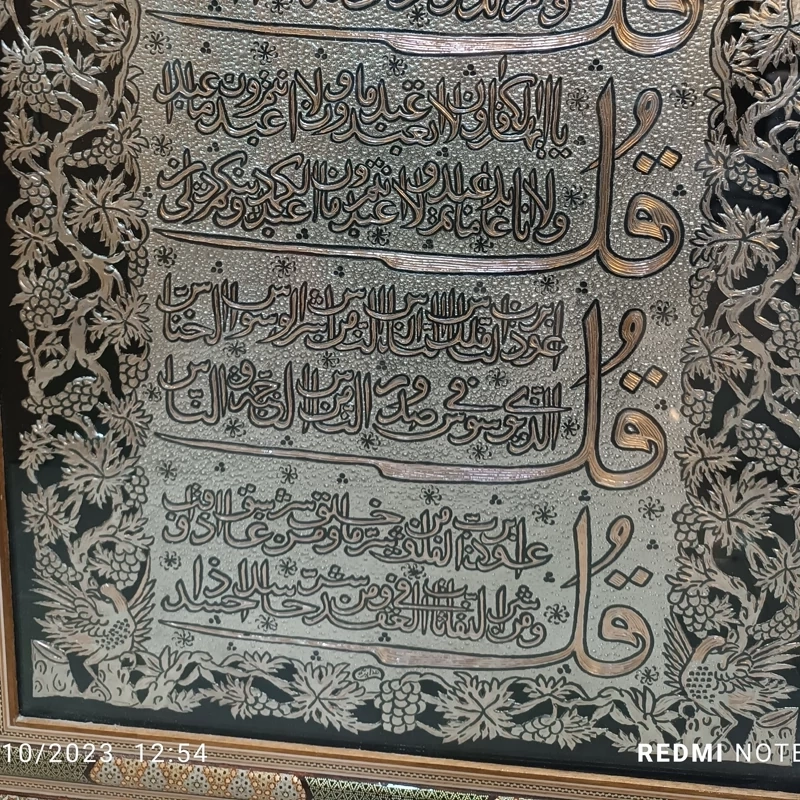 قل
يا ايها الكافرون لا اعبد ما تعبدون ولا انتم عابدون ما اعبد
ولا انا عابد ما عبدتم ولا انتم عابدون ما اعبد لكم دينكم ولي دين
قل
اعوذ برب الناس ملك الناس اله الناس من شر الوسواس الخناس
الذي يوسوس في صدور الناس من الجنة و الناس
قل
اعوذ برب الفلق من شر ما خلق و من شر غاسق اذا وقب
ومن شر النفاثات في العقد و من شر حاسد اذا حسد
قل
10/2023 12:54
REDMI NOTE